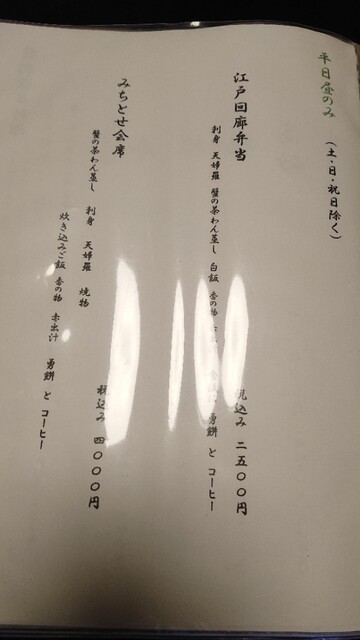 平日昼のみ (土・日・祝日除く)
江戸回廊弁当
刺身 天婦羅 蟹の茶わん蒸し 白飯 香の物 勇餅 と コーヒー
税込み 二五〇〇円
みちとせ会席
蟹の茶わん蒸し 刺身 天婦羅 焼物
炊き込みご飯 香の物 赤出汁 勇餅 と コーヒー
税込み 四〇〇〇円